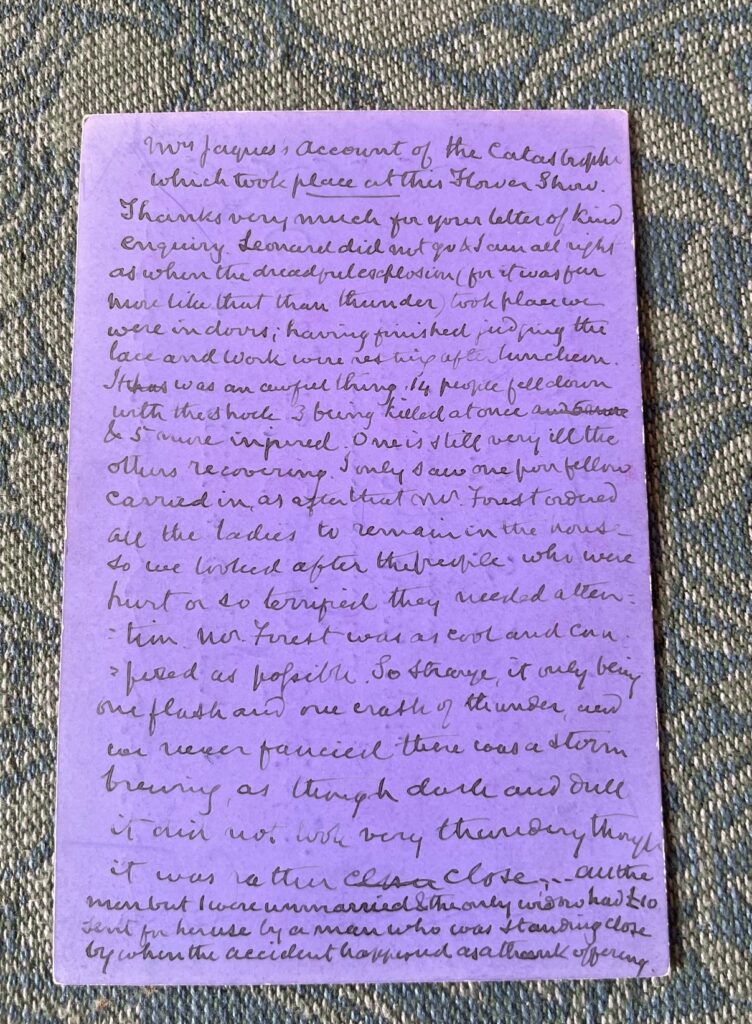 Mrs Jaques's account of the Catastrophe
which took place at this Flower Show.
Thanks very much for your letter of kind
enquiry. Leonard did not go & I am all right
as when the dreadful explosion (for it was far
more like that than thunder) took place we
were indoors; having finished judging the
lace and work were resting after luncheon.
It has was an awful thing. 14 people fell down
with the shock 3 being killed at once and 5 more
& 5 more injured. One is still very ill the
others recovering. I only saw one poor fellow
carried in, as after that Mr. Forest ordered
all the ladies to remain in the house -
so we looked after the people who were
hurt or so terrified they needed atten-
-tion. Mr. Forest was as cool and com-
=posed as possible. So strange, it only being
one flash and one crash of thunder, and
we never fancied there was a storm
brewing, as though dark and dull
it did not look very thundery though
it was rather close close... all the
men but 1 were unmarried & the only widow had £10
sent for her use by a man who was standing close
by when the accident happened as a thank offering